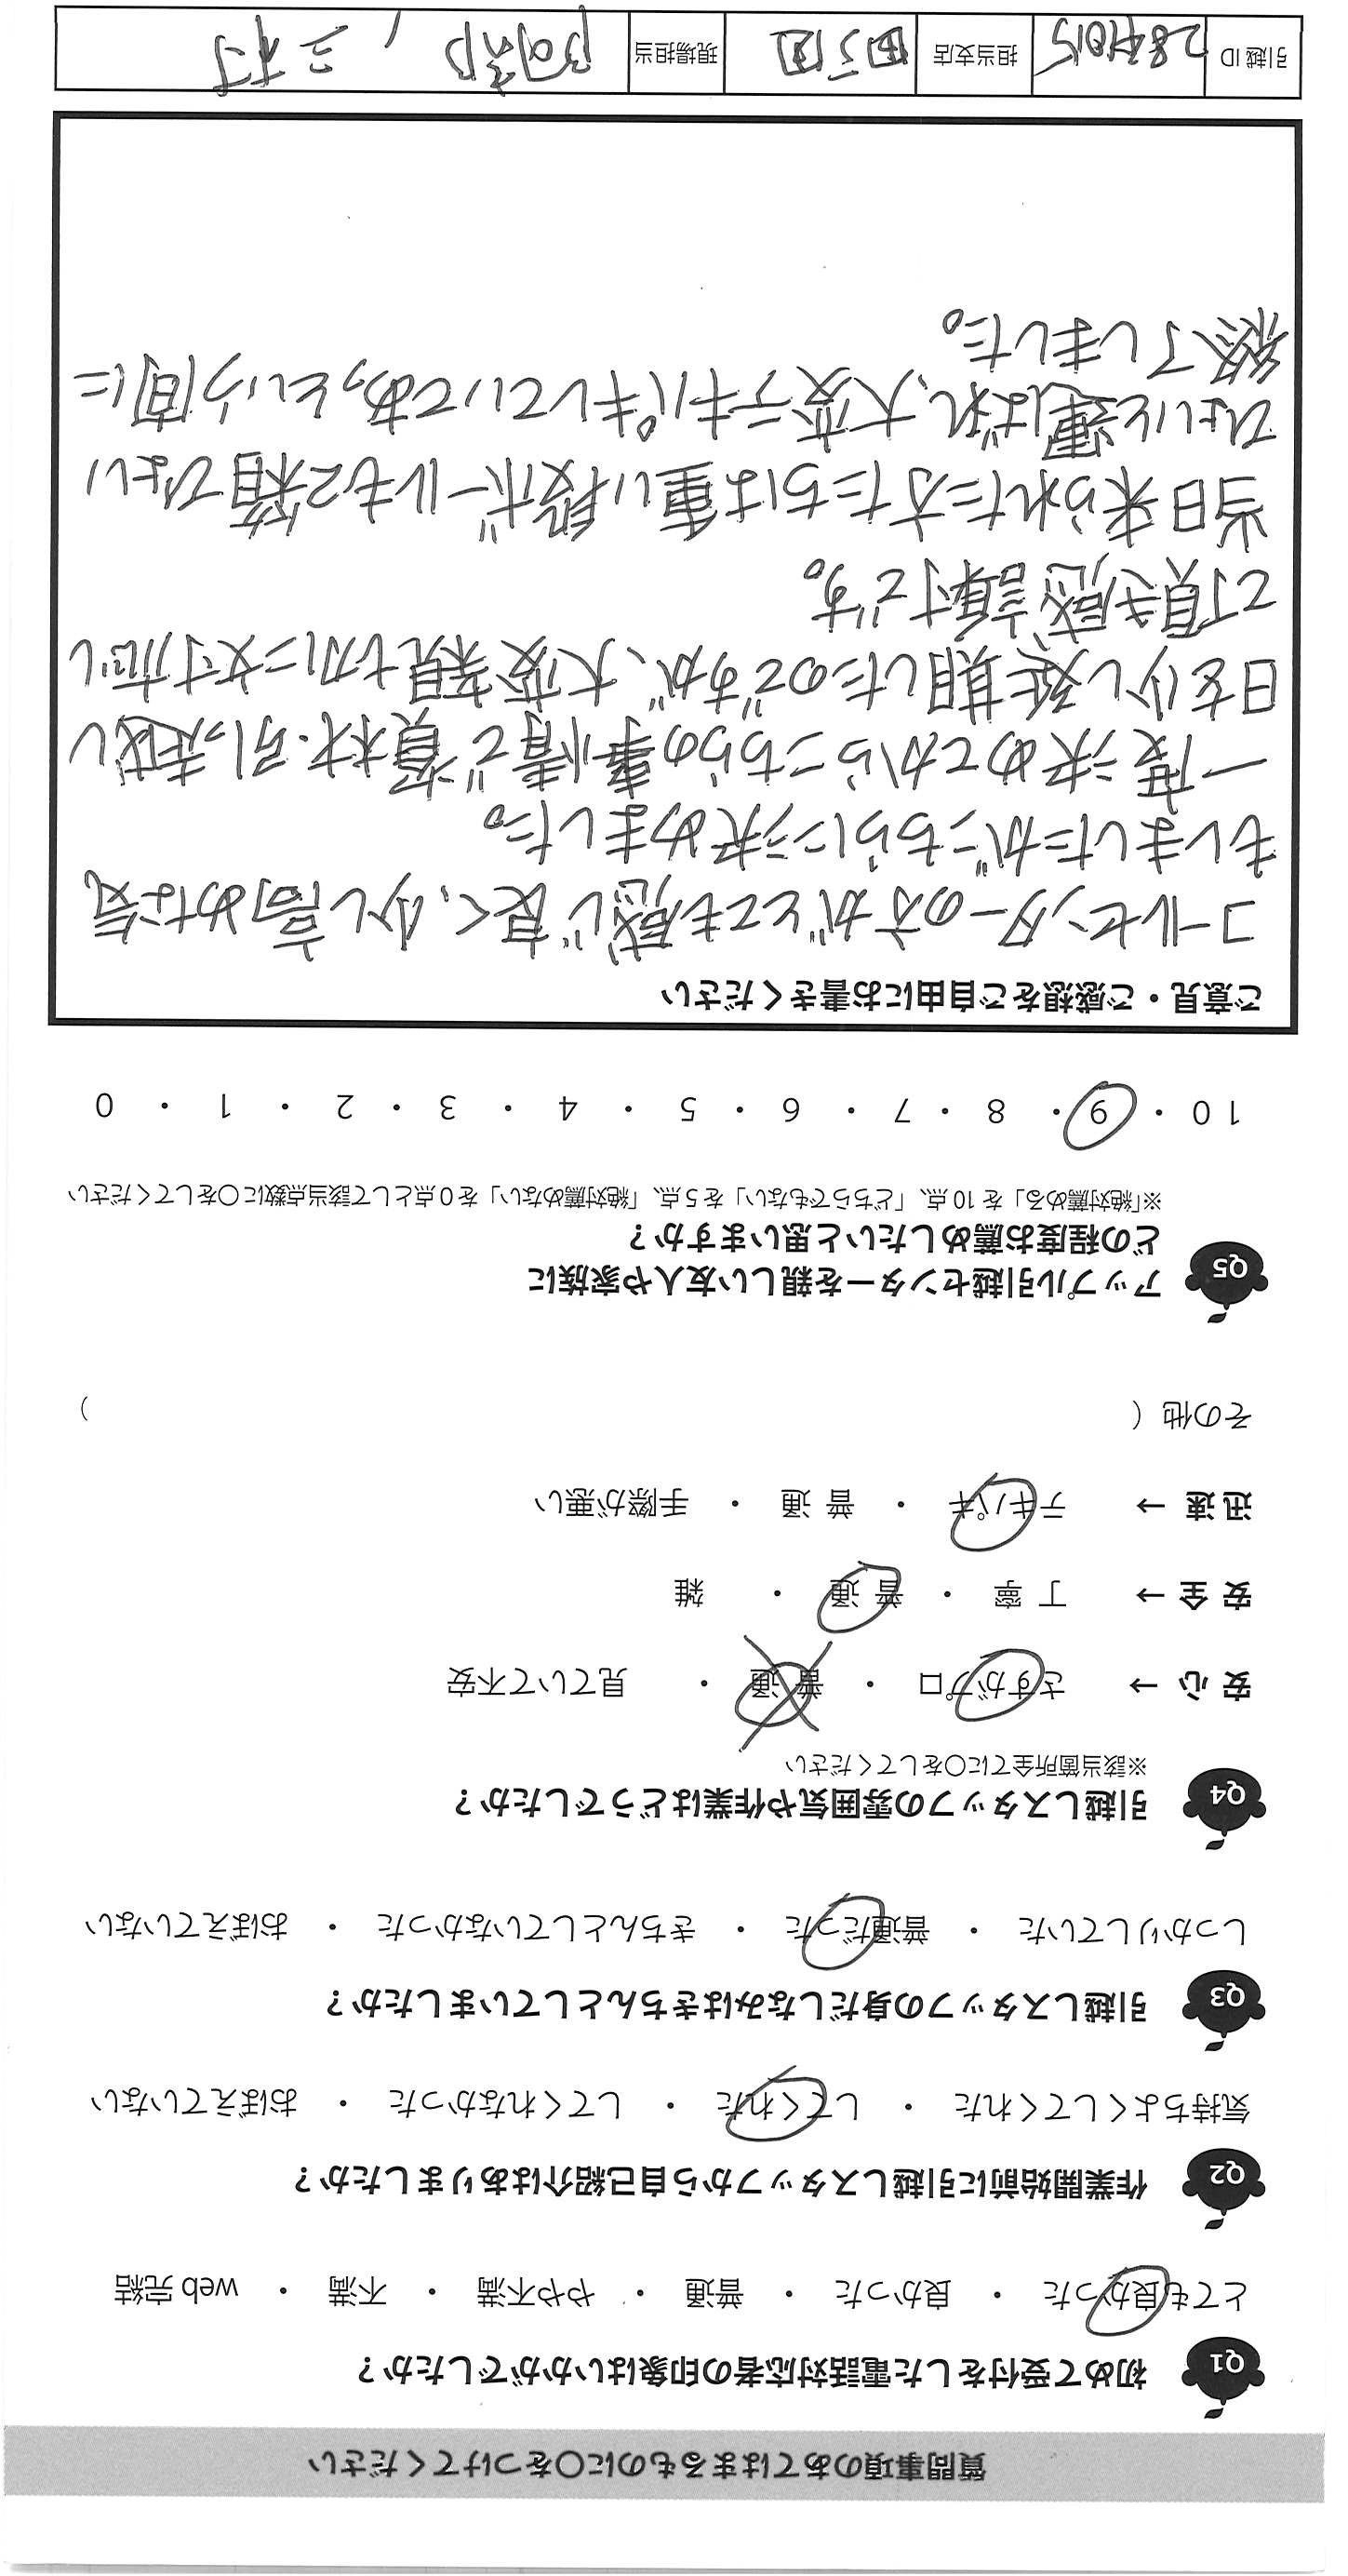 質問事項のあてはまるものに〇をつけてください
Q1 初めて受付をした電話対応者の印象はいかがでしたか？
とても良かった ・ 良かった ・ 普通 ・ やや不満 ・ 不満 ・ web 完結
Q2 作業開始前に引越しスタッフから自己紹介はありましたか？
気持ちよくしてくれた ・ してくれた ・ してくれなかった ・ おぼえていない
Q3 引越しスタッフの身だしなみはきちんとしていましたか？
しっかりしていた ・ 普通だった ・ きちんとしていなかった ・ おぼえていない
Q4 引越しスタッフの雰囲気や作業はどうでしたか？
※該当箇所全てに〇をしてください
安 心 → さすがプロ ・ 普 通 ・ 見ていて不安
安 全 → 丁 寧 ・ 普 通 ・ 雑
迅 速 → テキパキ ・ 普 通 ・ 手際が悪い
その他（ ）
Q5 アップル引越センターを親しい友人や家族に
どの程度お薦めしたいと思いますか？
※「絶対薦める」を 10 点、「どちらでもない」を 5 点、「絶対薦めない」を 0 点として該当点数に〇をしてください
10 ・ 9 ・ 8 ・ 7 ・ 6 ・ 5 ・ 4 ・ 3 ・ 2 ・ 1 ・ 0
ご意見・ご感想をご自由にお書きください
コールセンターの方がとても感じ良く、少し高めな気
もしましたがこちらに決めました。
一度決めてからこちらの事情で資材・引っ越し
日を少し延期したのですが、大変親切に対応し
て頂き感謝です。
当日来られた方たちは重い段ボールも2箱ひょい
ひょいと運ばれ、大変テキパキしていてあっという間に
終了しました。
引越 ID 担当支店 現場担当 阿部 , 三村